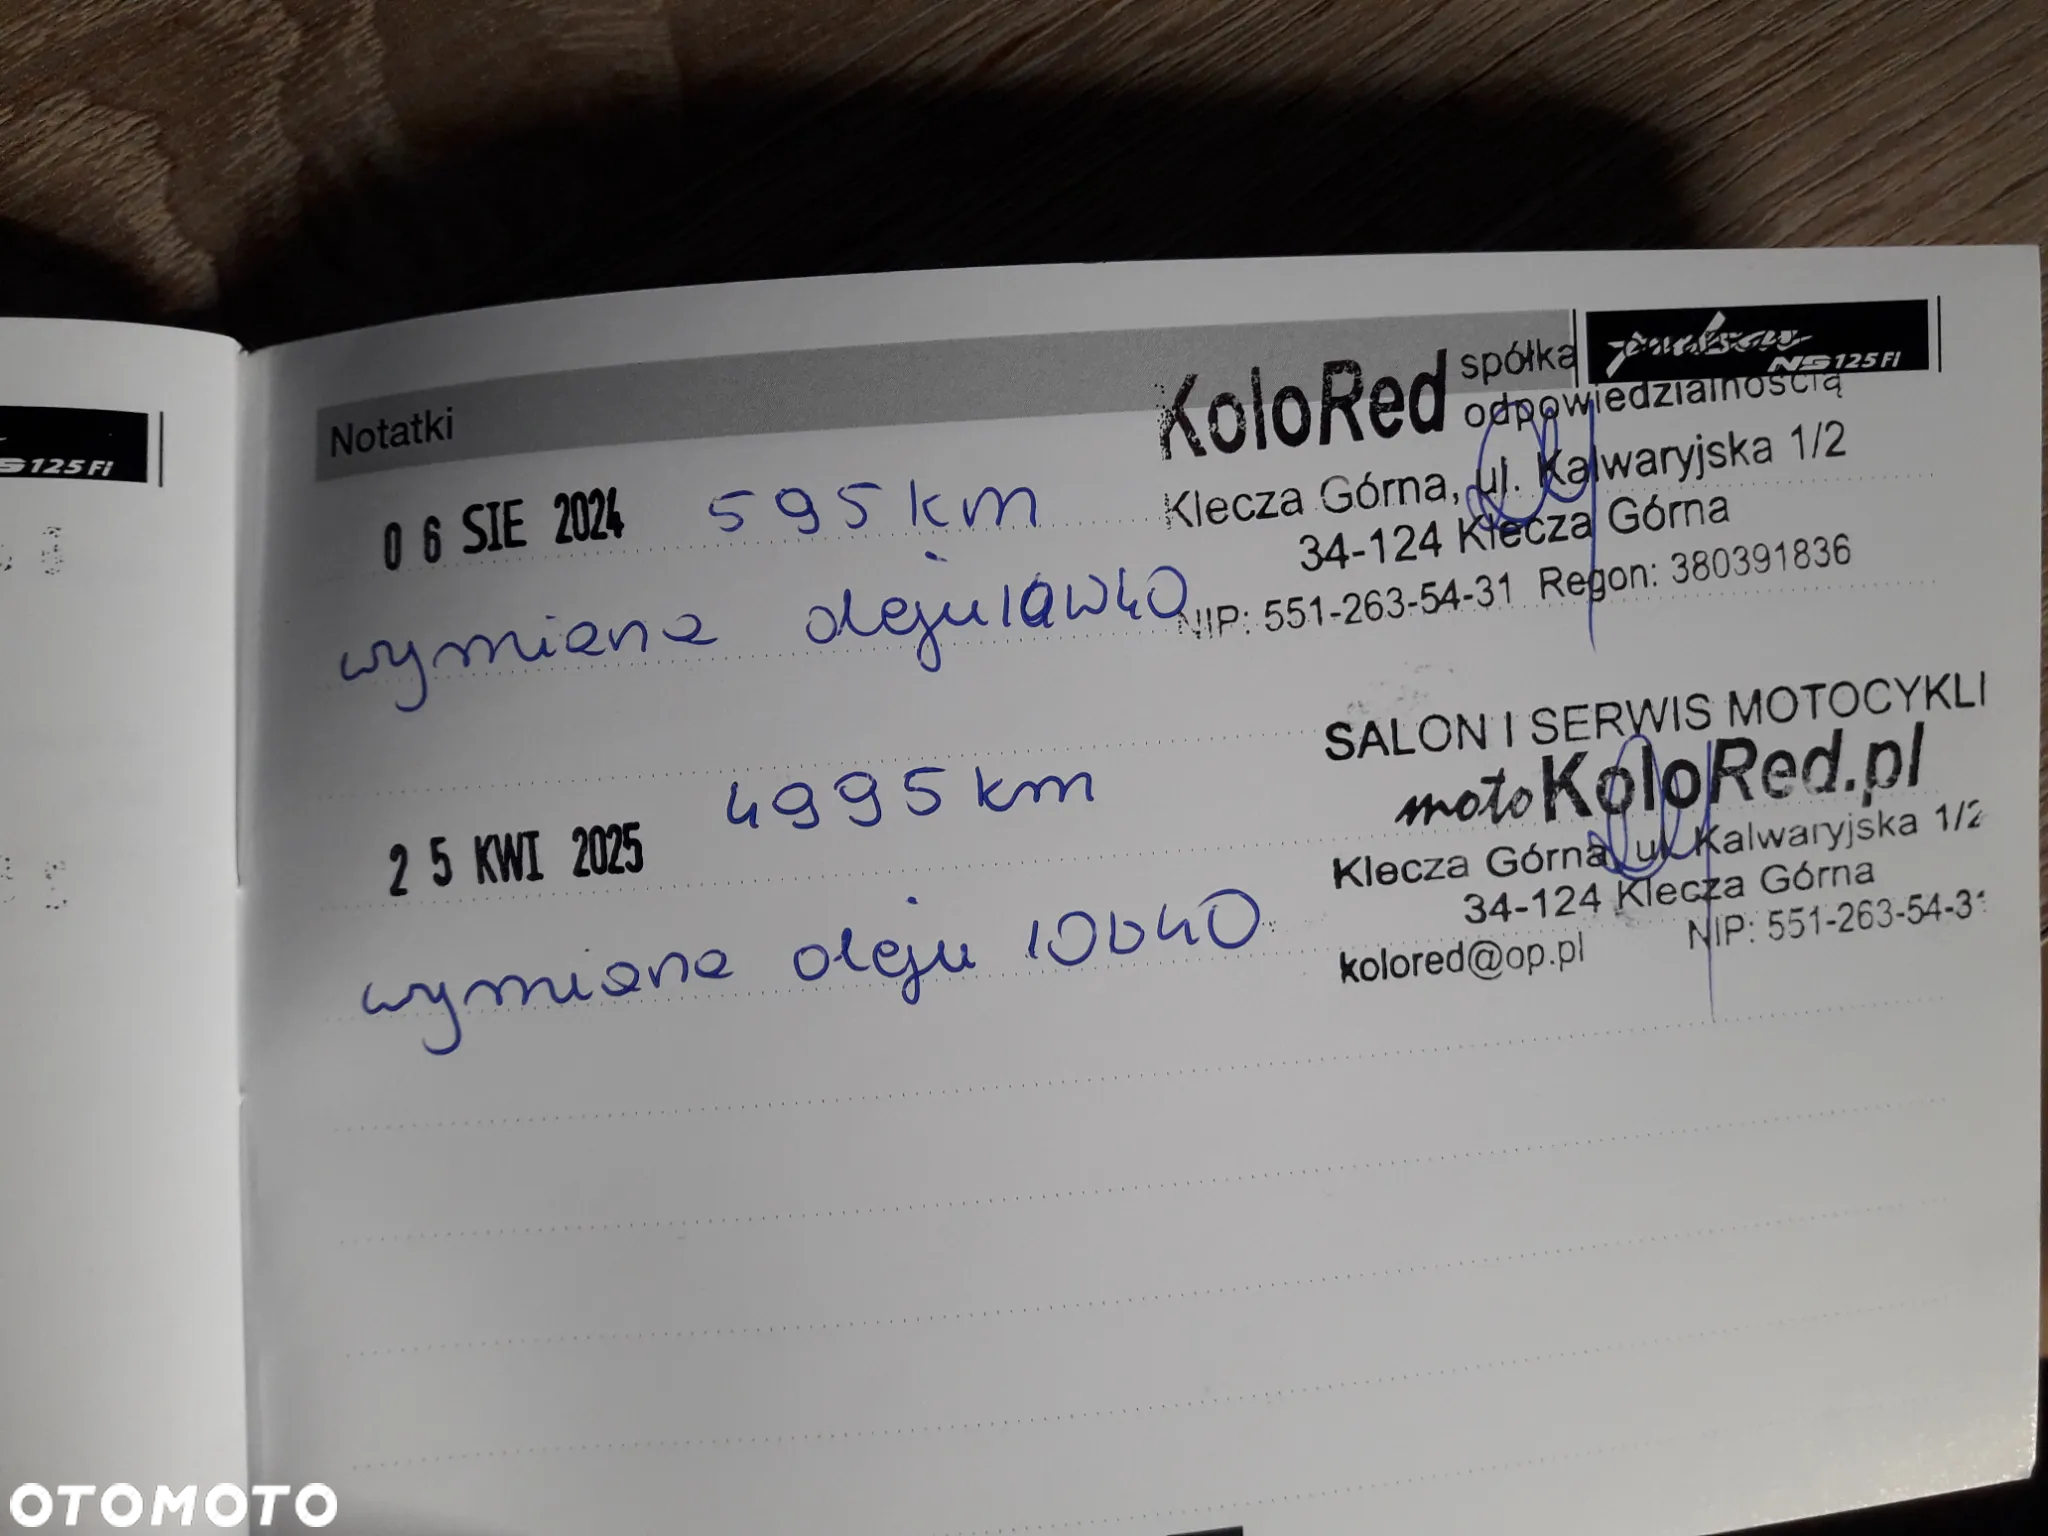 pulsar
NS125Fi
NS125Fi
Notatki
KoloRed spółka
odpowiedzialnością
Klecza Górna, ul. Kalwaryjska 1/2
34-124 Klecza Górna
NIP: 551-263-54-31 Regon: 380391836
06 SIE 2024 595 km
wymiana oleju 10W40
SALON I SERWIS MOTOCYKLI
moto KoloRed.pl
Klecza Górna, ul. Kalwaryjska 1/2
34-124 Klecza Górna
kolored@op.pl NIP: 551-263-54-31
25 KWI 2025 4995 km
wymiana oleju 10W40
OTOMOTO